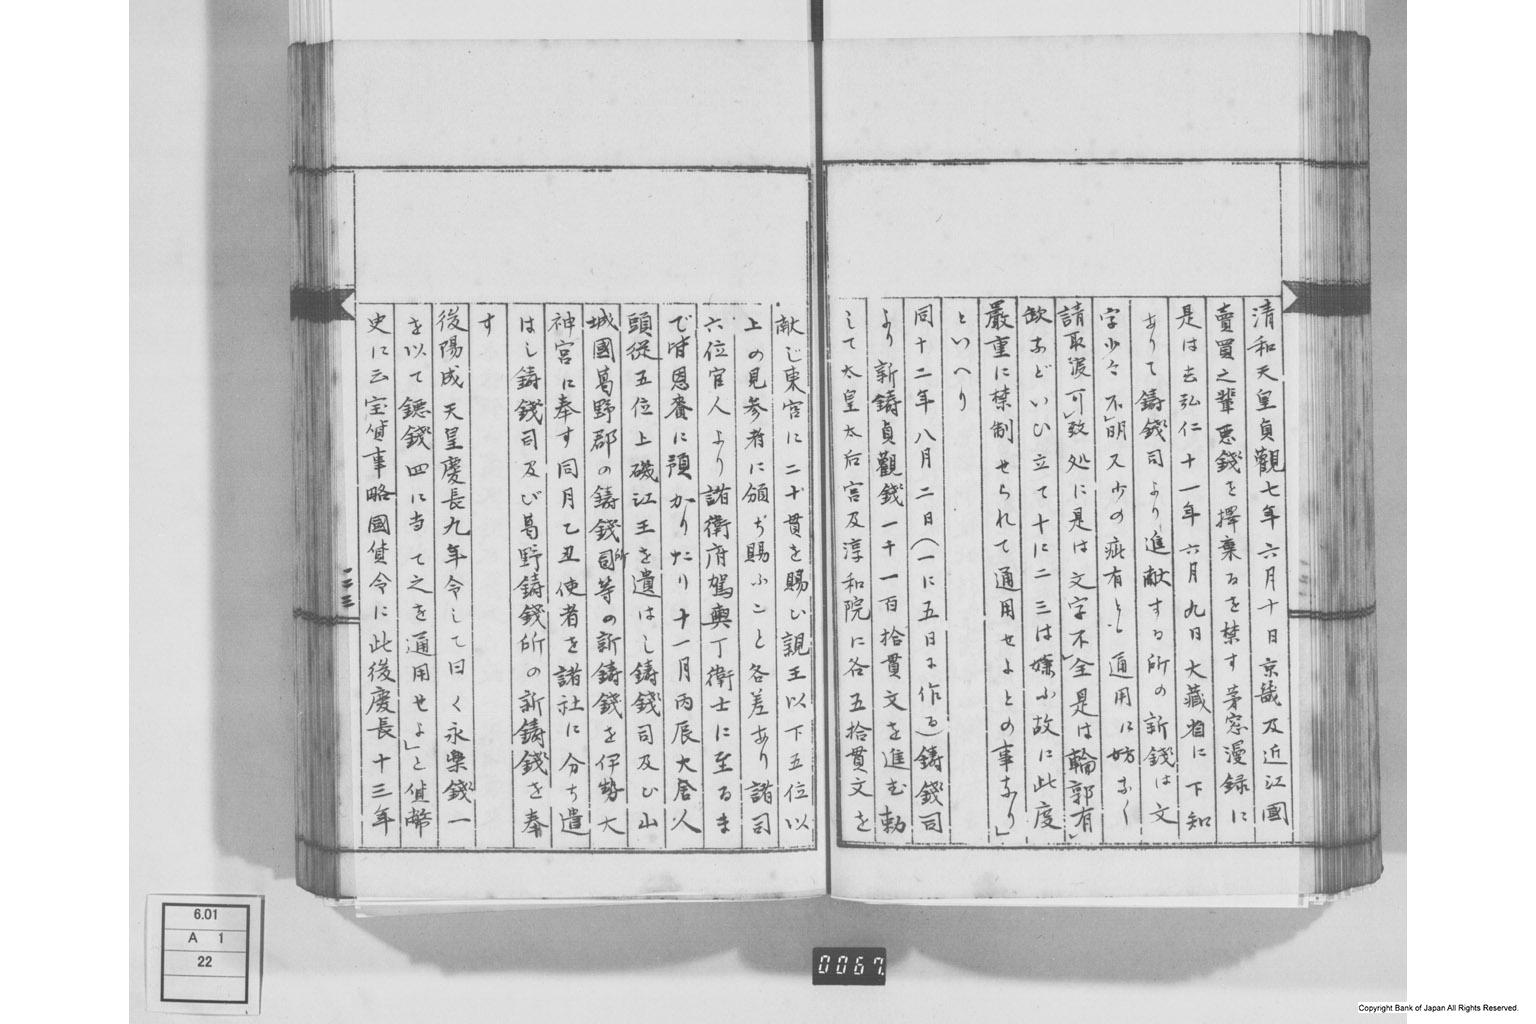 清和天皇貞觀七年六月十日京畿及近江國
賣買之輩悪錢を擇棄るを禁す茅窓漫録に
是は去弘仁十一年六月九日大藏省に下知
ありて鋳錢司より進献する所の新錢は文
字少々不明又少の疵有とも通用に妨なく
請取渡可致処に是は文字不全是は輪郭有」
缺などいひ立て十に二三は嫌ふ故に此度
嚴重に禁制せられて通用せよとの事なり」
といへり
同十二年八月二日(一に五日に作る)鋳錢司
より新鋳貞觀錢一千一百拾貫文を進む勅
して太皇太后宮及淳和院に各五拾貫文を
献じ東宮に二十貫を賜ひ親王以下五位以
上の見参者に頒ち賜ふこと各差あり諸司
六位官人より諸衛府駕輿丁衛士に至るま
で皆恩賚に預かりたり十一月丙辰大舎人
頭従五位上磯江王を遣はし鋳錢司及び山
城國葛野郡の鋳錢司所等の新鋳錢を伊勢大
神宮に奉す同月乙丑使者を諸社に分ち遣
はし鋳錢司及び葛野鋳錢所の新鋳錢を奉
す
後陽成天皇慶長九年令して曰く永樂錢一
を以て鐚錢四に当て之を通用せよ」と貨幣
史に云宝貨事略國貨令に此後慶長十三年
二二三
6.01
A 1
22
0067.
Copyright Bank of Japan All Rights Reserved.